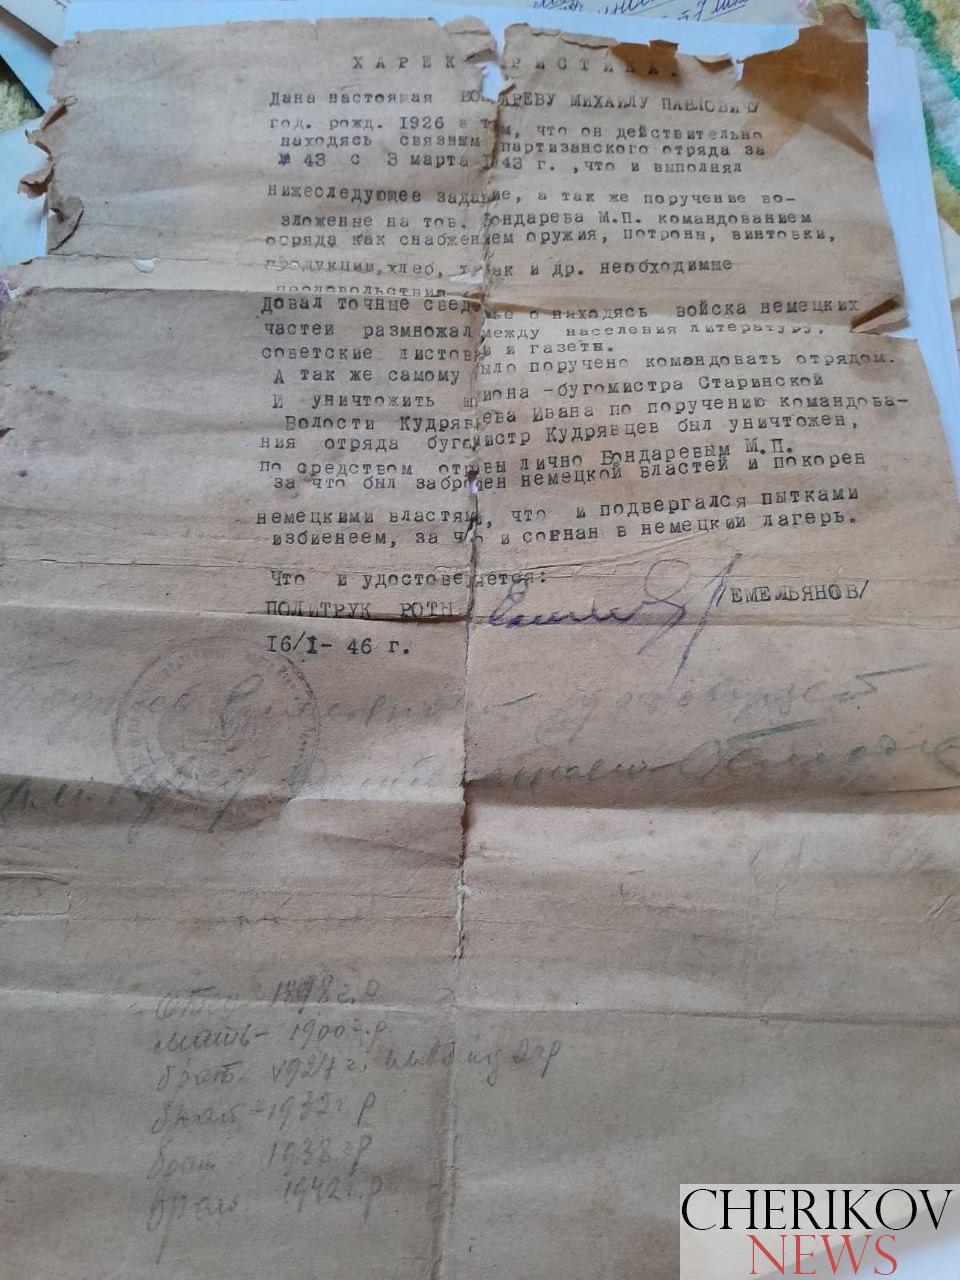 ХАРЕК РИСТИКА.
Дана настоящая БОНДАРЕВУ МИХАИЛУ ПАВЛОВИЧУ
год. рожд. 1926 в том, что он действительно
находясь связным партизанского отряда за
№ 43 с 3 марта 1943 г. ,что и выполнял
нижеследующее задание, а так же поручение во-
зложеные на тов. Бондарева М.П. командованием
отряда как снабжением оружия, потроны, винтовки,
продукции,хлеб, табак и др. необходимые
продовольствия
довал точные сведенье о находясь войска немецких
частей размножал между населения литературу,
советские листовки и газеты.
А так же самому было поручено командовать отрядом.
И уничтожить шпиона -бугомистра Старинской
Волости Кудрявцева Ивана по поручению командова-
ния отряда бугомистр Кудрявцев был уничтожен,
по средством отравы лично Бондаревым М.П.
за что был забран немецкой властей и покорен
немецкими властями, что и подвергался пытками
избиенеем, за что и согнан в немецкий лагерь.
Что и удостоверяется:
ПОЛИТРУК РОТЫ /ЕМЕЛЬЯНОВ/
16/I- 46 г.
отец 1898 г.р
мать - 1900 г.р.
брат. 1924 г.
брат - 1932 г р
брат 1938 г р
1942 г.р
CHERIKOV
NEWS